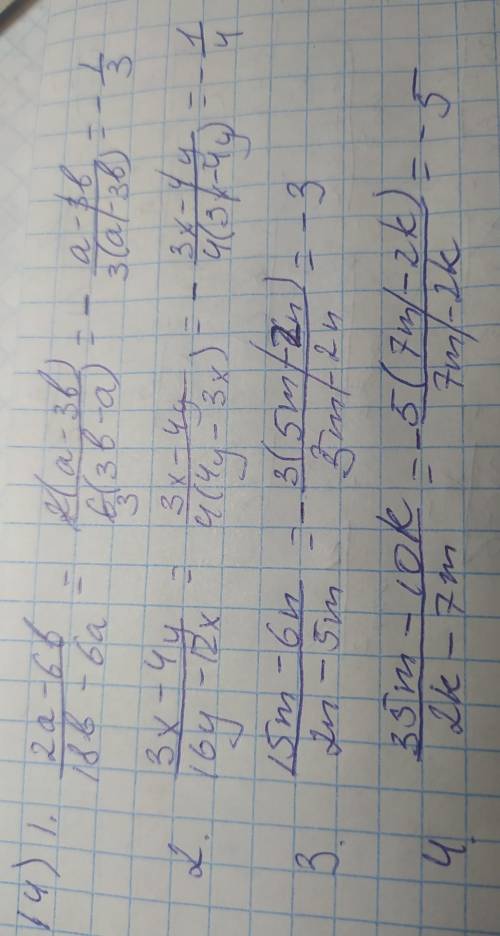 14) 1. (2a - 6b)/(18b - 6a) = 2(a - 3b)/6(3b - a) 3 = - (a - 3b)/3(a - 3b) = - 1/3
2. (3x - 4y)/(16y - 12x) = (3x - 4y)/4(4y - 3x) = - (3x - 4y)/4(3x - 4y) = - 1/4
3. (15m - 6n)/(2n - 5m) = - 3(5m - 2n)/(5m - 2n) = -3
4. (35m - 10k)/(2k - 7m) = - 5(7m - 2k)/(7m - 2k) = -5